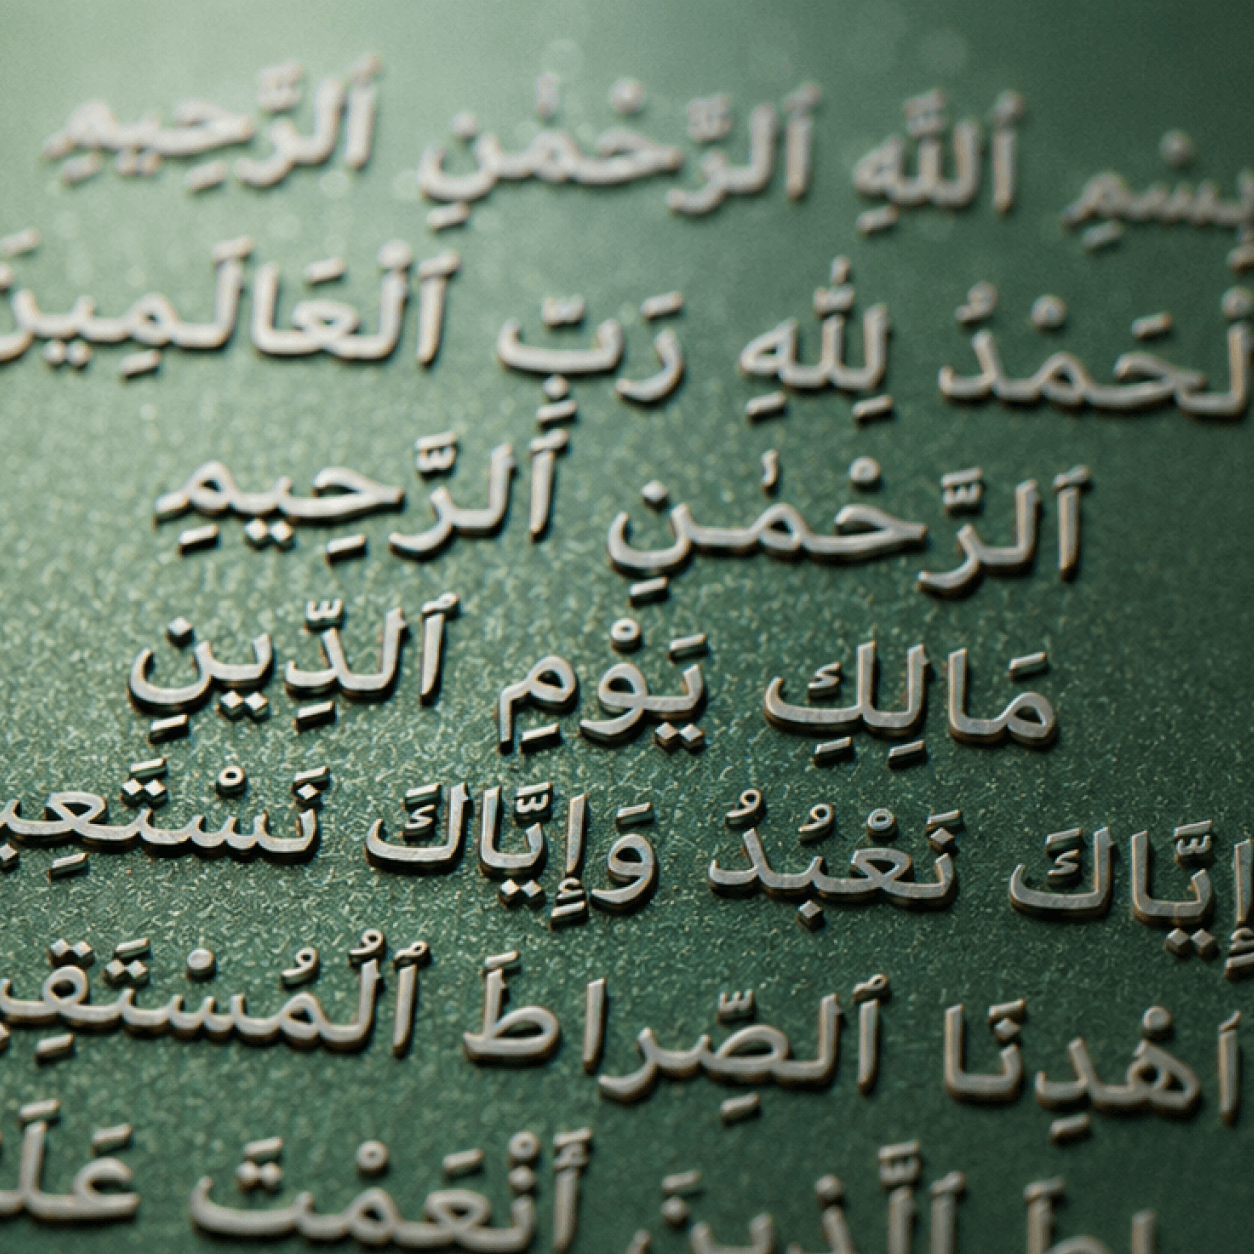 بِسْمِ ٱللَّهِ ٱلرَّحْمَٰنِ ٱلرَّحِيمِ
لْحَمْدُ لِلَّهِ رَبِّ ٱلْعَالَمِينَ
ٱلرَّحْمَٰنِ ٱلرَّحِيمِ
مَالِكِ يَوْمِ ٱلدِّينِ
إِيَّاكَ نَعْبُدُ وَإِيَّاكَ نَسْتَعِي
ٱهْدِنَا ٱلصِّرَاطَ ٱلْمُسْتَقِي
اطَ ٱلَّذِينَ أَنْعَمْتَ عَلَ